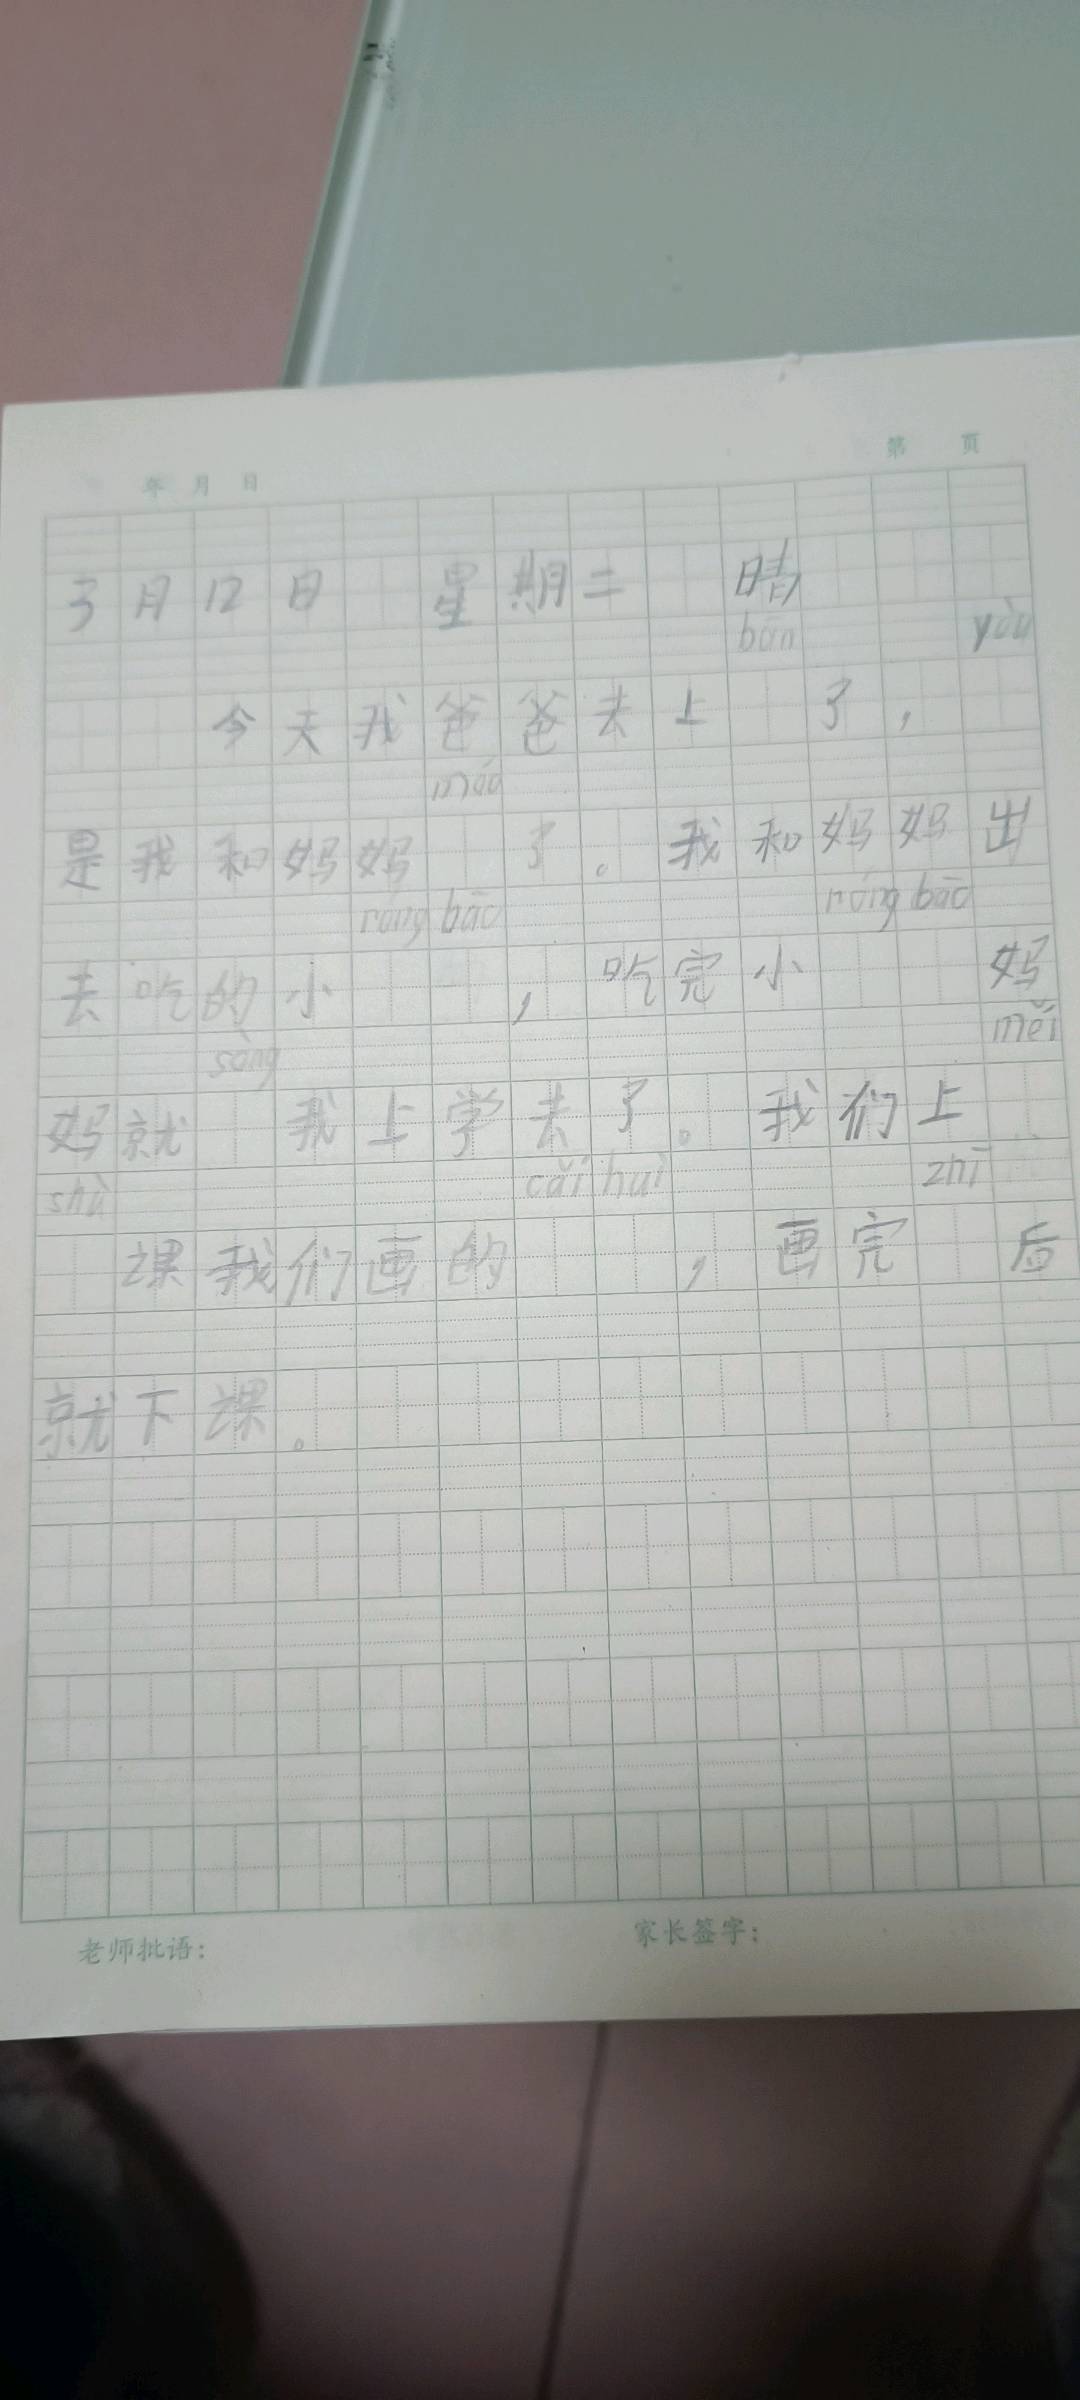 年 月 日 第 页
3月12日 星期二 晴
bān yòu
今天我爸爸去上 了，
máo
是我和妈妈 了。我和妈妈出
róng bāo róng bāo
去吃的小 ，吃完小 妈
sòng měi
妈就 我上学去了。我们上
shù cǎi huì zhī
课我们画的 ，画完 后
就下课。
老师批语： 家长签字：